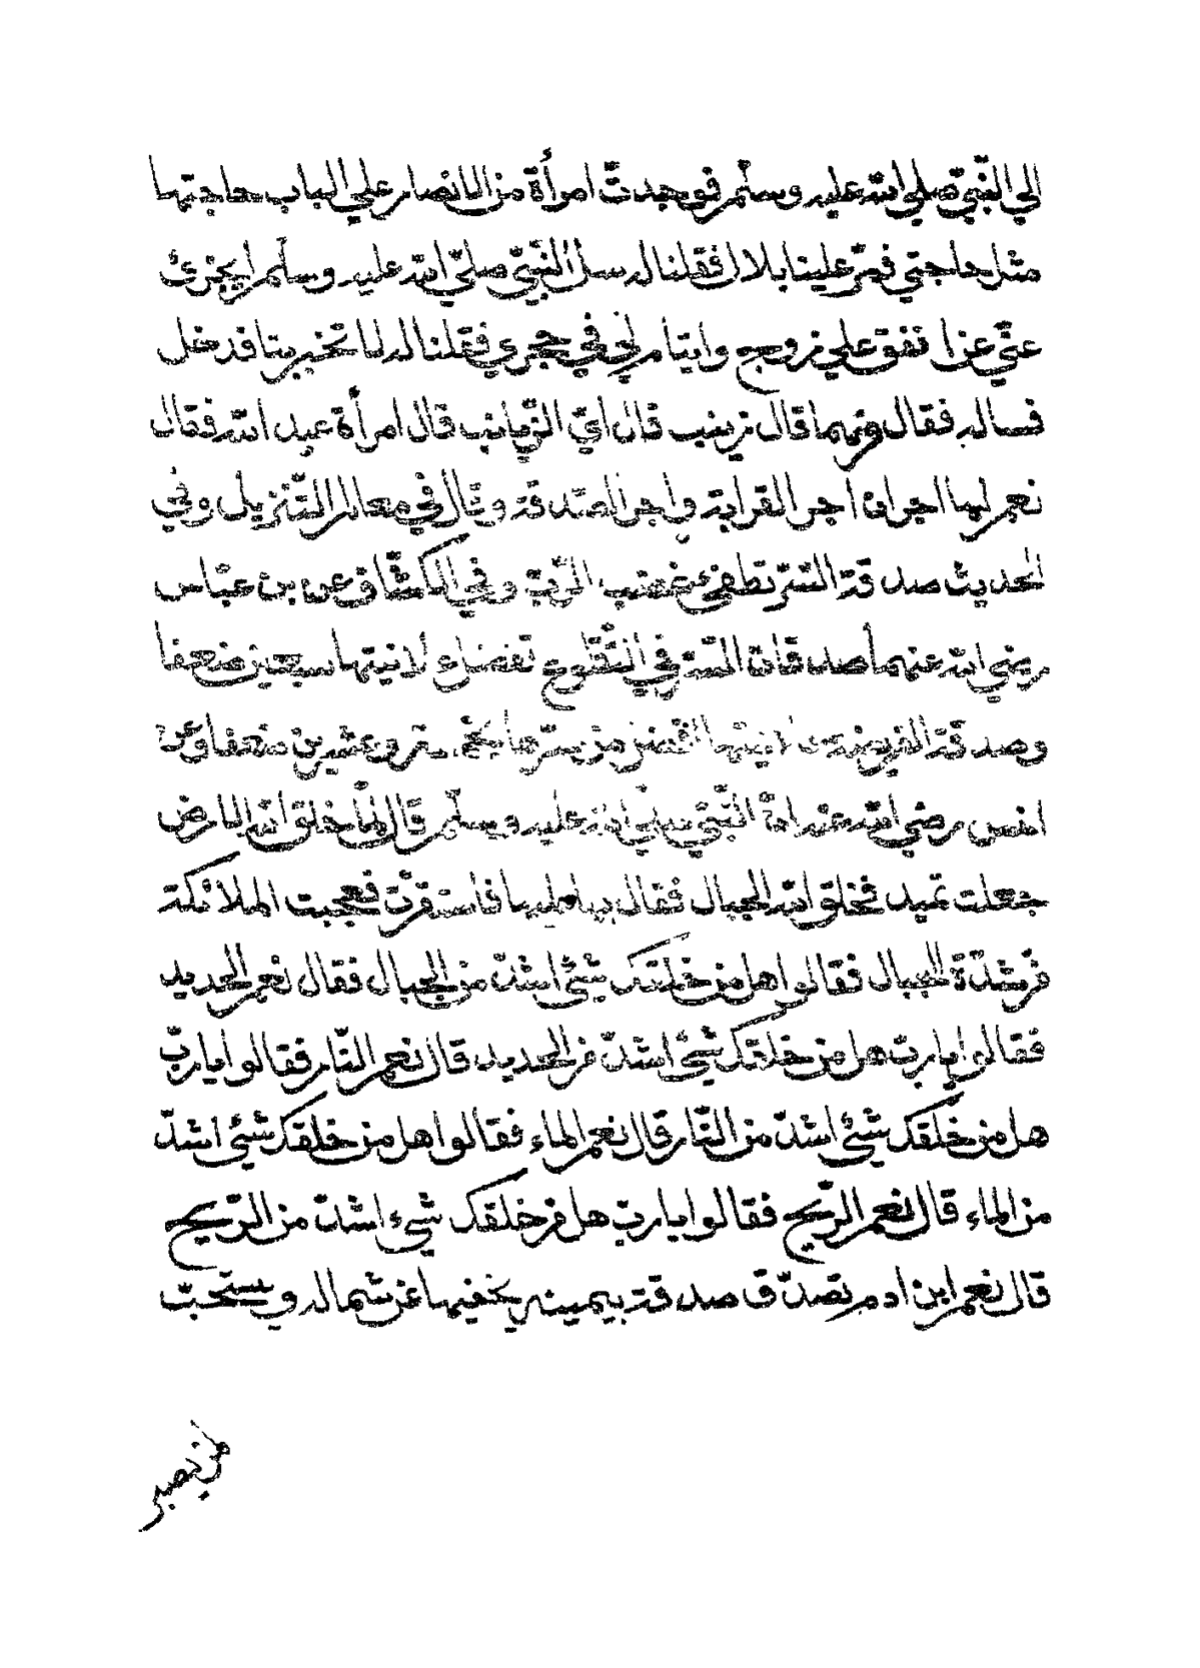 الي النبيّ صلي الله عليه وسلّم فوجدتّ امرأة من الانصار علي الباب حاجتها
مثل حاجتي فمرّ علينا بلال فقلنا له سل النّبيّ صلّي الله عليه وسلّم ايجزئ
عنّي عن انفق علي زوج وايتام لي في حجري فقلنا له لا تخبر بنا فدخل
فساله فقال من هما قال زينب قال ايّ الزّيانب قال امرأة عبد الله فقال
نعم لهما اجران أجر القرابة وأجر الصّدقة وقال في معالم التّنزيل وفي
الحديث صدقة السّر تطفئ غضب الرّبّ وفي الكشّاف عن بن عبّاس
رضي الله عنهما صدقات السّرّ في التّطوع تفضل علانيتها سبعين ضعفا
وصدقة الفريضة علانيتها افضل من سرّها بخمسة وعشرين ضعفا وعن
انس رضي الله عنه انّ النّبيّ صلّي الله عليه وسلّم قال لمّا خلق الله الارض
جعلت تميد فخلق الله الجبال فقال بها عليها فاستقرّت فعجبت الملائكة
من شدّة الجبال فقالوا هل من خلقك شئ اشدّ من الجبال فقال نعم الحديد
فقالوا يا ربّ هل من خلقك شئ اشدّ من الحديد قال نعم النّار فقالوا يا ربّ
هل من خلقك شئ اشدّ من النّار قال نعم الماء فقالوا هل من خلقك شئ اشدّ
من الماء قال نعم الرّيح فقالوا يا ربّ هل من خلقك شيء اشدّ من الرّيح
قال نعم ابن ادم تصدّق صدقة بيمينه يخفيها عن شماله ويستحبّ